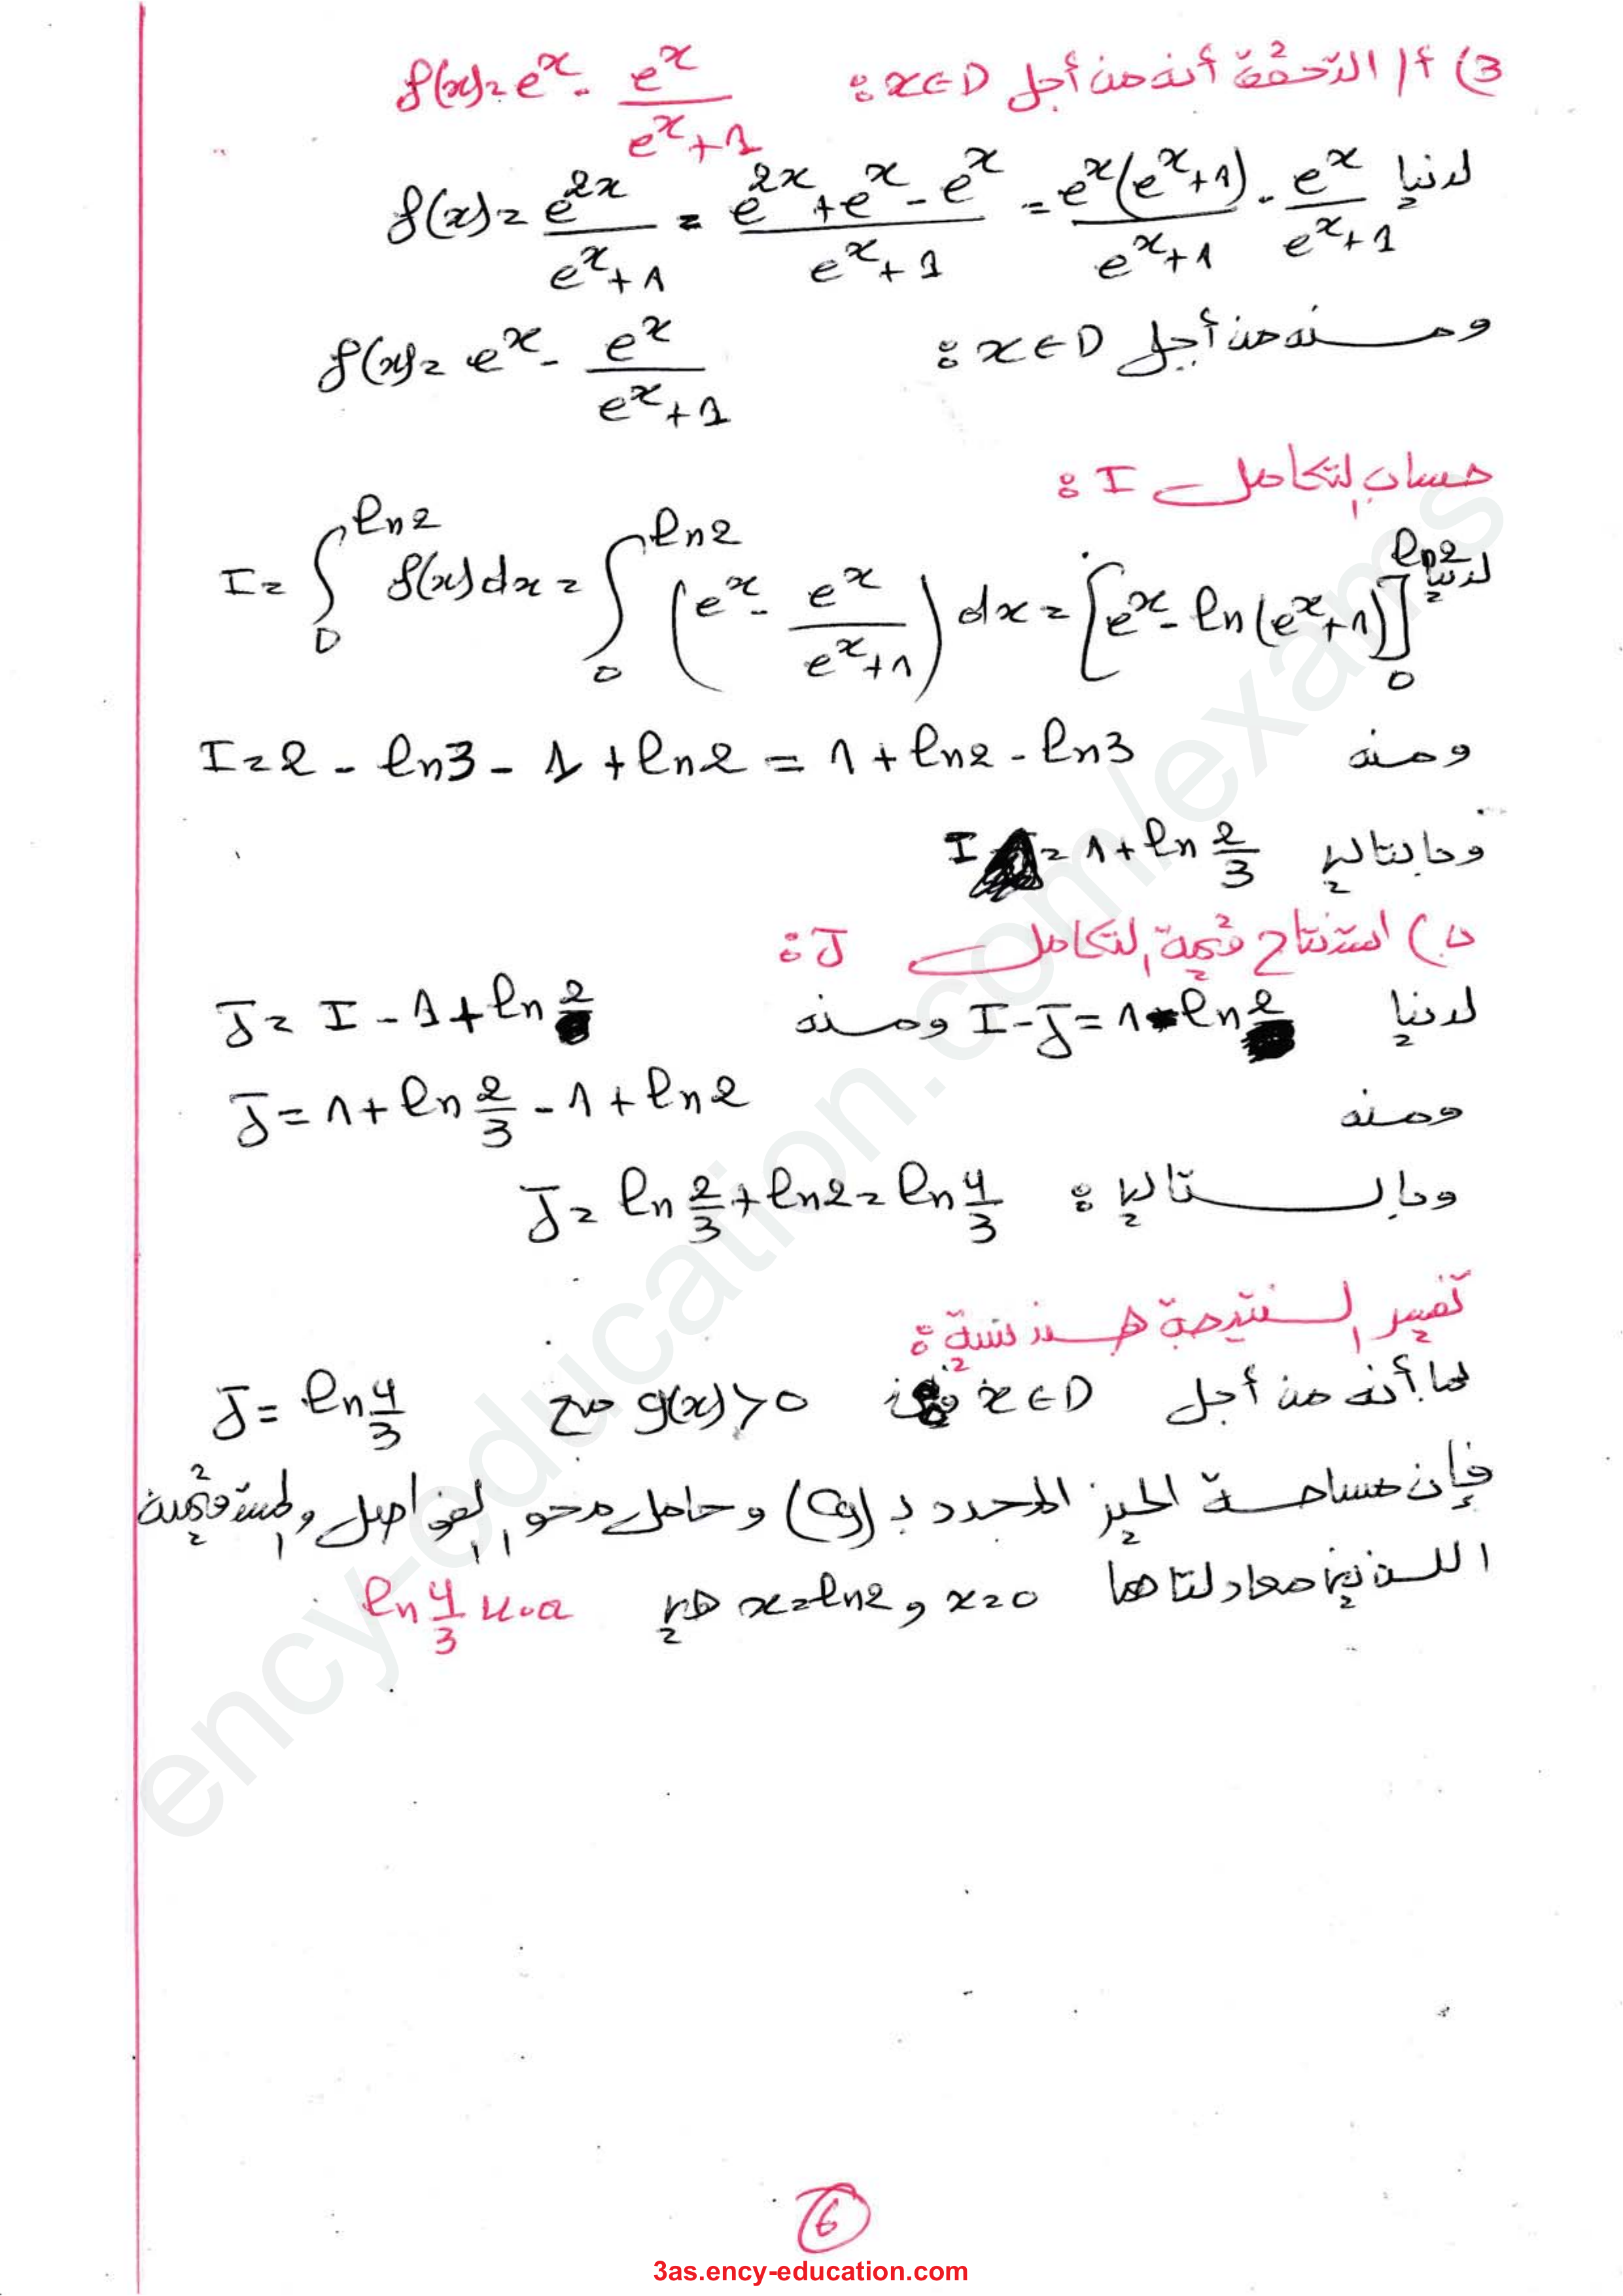 3) أ/ التحقق أنه من أجل x∈D : f(x) = e^x - e^x/(e^x+1)
لدينا f(x) = e^{2x}/(e^x+1) = (e^{2x}+e^x-e^x)/(e^x+1) = e^x(e^x+1)/(e^x+1) - e^x/(e^x+1)
ومنه من أجل x∈D : f(x) = e^x - e^x/(e^x+1)
حساب التكامل I :
لدينا I = ∫_0^{ln2} f(x)dx = ∫_0^{ln2} (e^x - e^x/(e^x+1)) dx = [e^x - ln(e^x+1)]_0^{ln2}
ومنه I = 2 - ln3 - 1 + ln2 = 1 + ln2 - ln3
وبالتالي I = 1 + ln 2/3
ب) استنتاج قيمة التكامل J :
لدينا I - J = 1 - ln2 ومنه J = I - 1 + ln2
ومنه J = 1 + ln 2/3 - 1 + ln2
وبالتالي : J = ln 2/3 + ln2 = ln 4/3
تفسير النتيجة هندسية :
بما أنه من أجل x∈D فإن g(x)>0 مع J = ln 4/3
فإن مساحة الحيز المحدد بـ (Cg) وحامل محور الفواصل والمستقيمين
اللذين معادلتاهما x=0 و x=ln2 هي ln 4/3 u.a
6
3as.ency-education.com
ency-education.com/exams